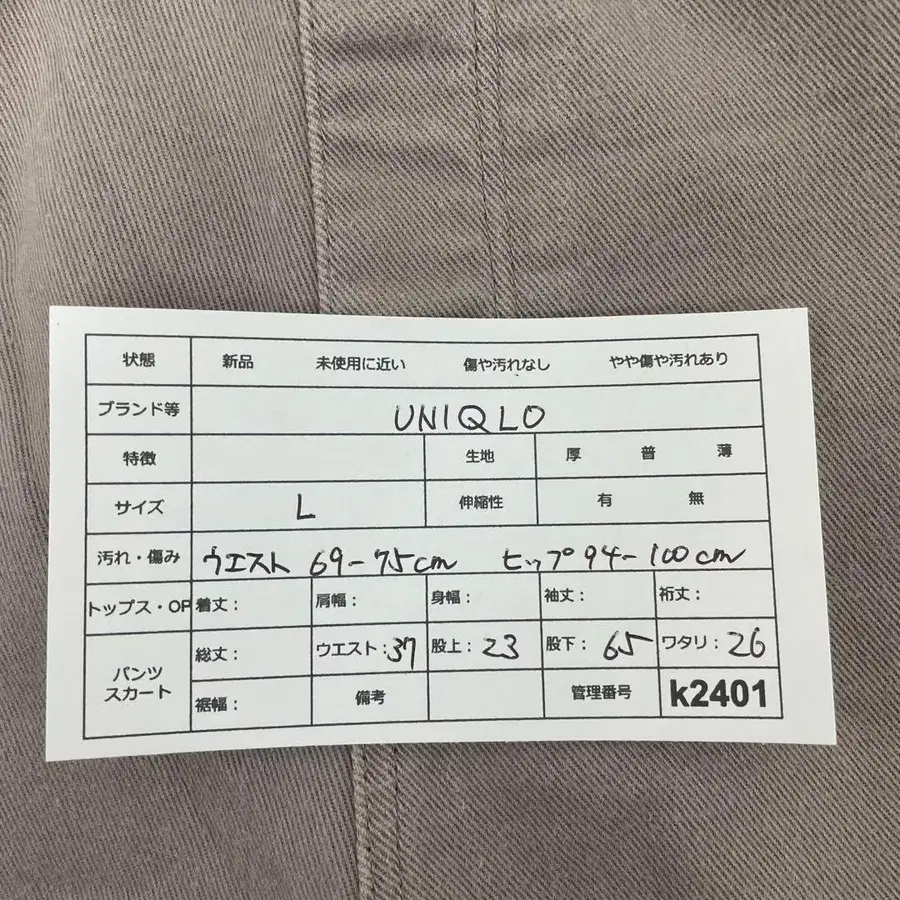 状態 新品 未使用に近い 傷や汚れなし やや傷や汚れあり
ブランド等 UNIQLO
特徴 生地 厚 普 薄
サイズ L 伸縮性 有 無
汚れ・傷み ウエスト 69-75cm ヒップ94-100cm
トップス・OP 着丈： 肩幅： 身幅： 袖丈： 裄丈：
パンツ スカート 総丈： ウエスト：37 股上：23 股下：65 ワタリ：26
裾幅： 備考 管理番号 k2401